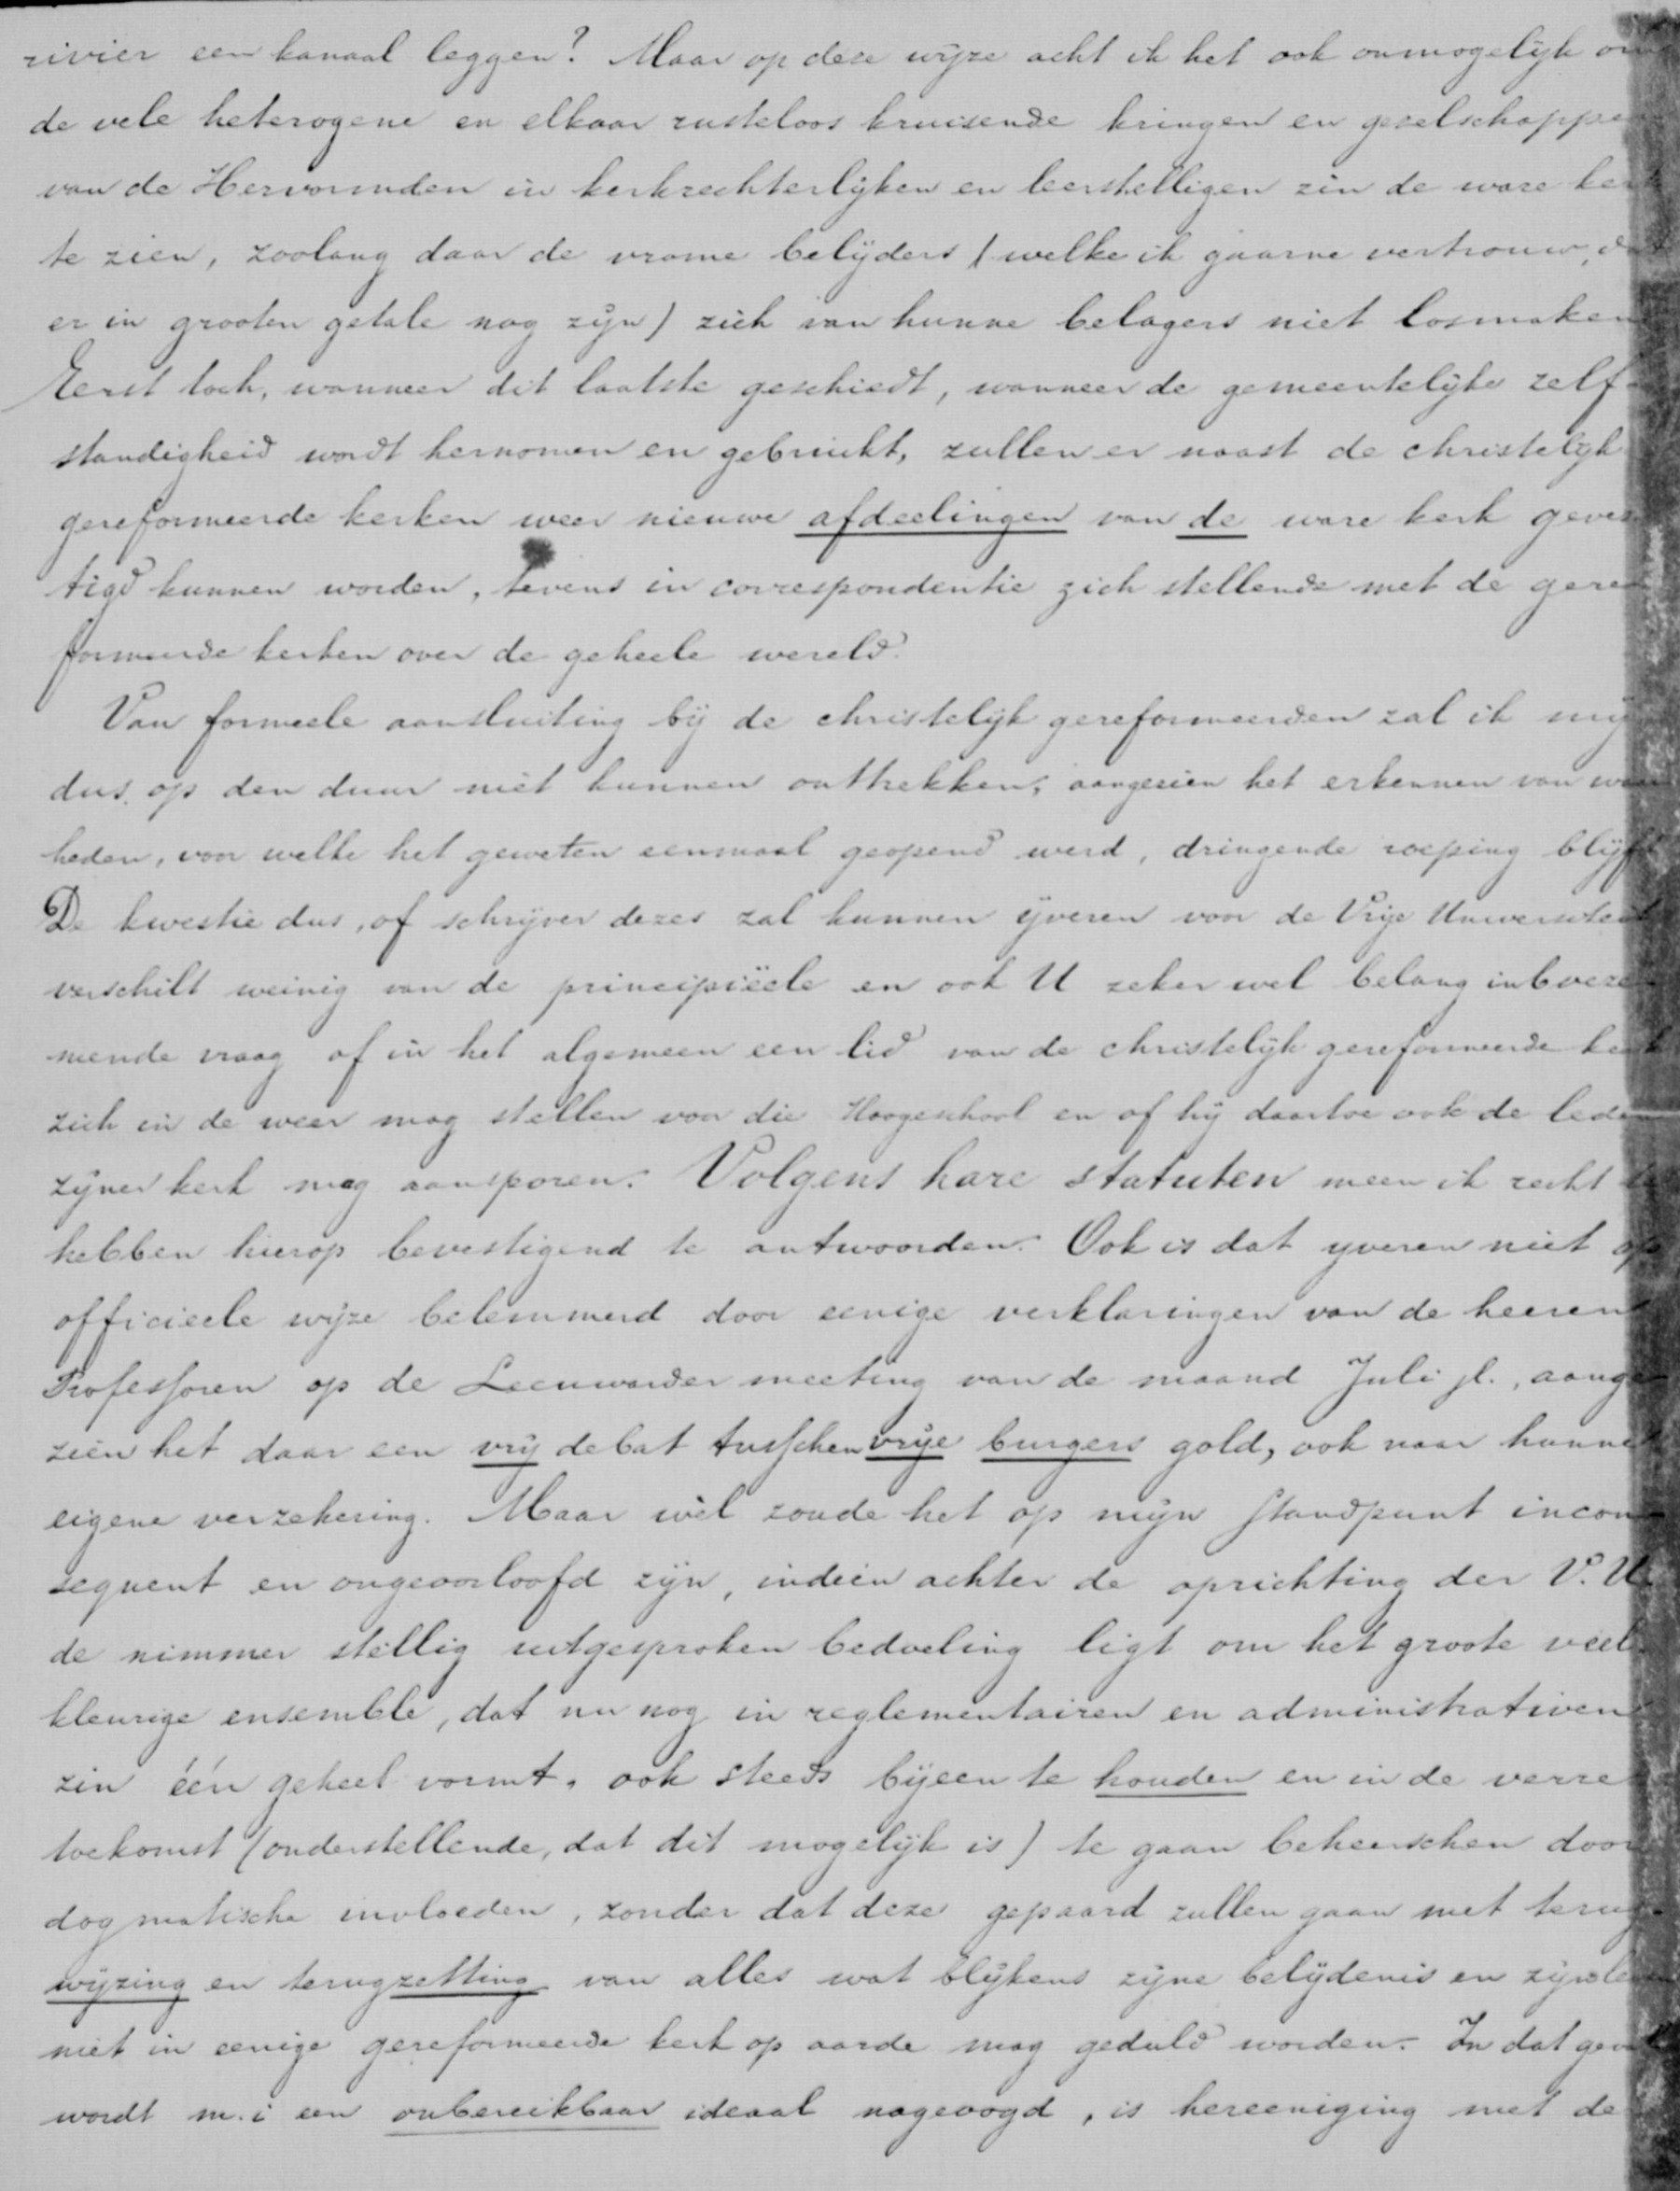 rivier een kanaal leggen? Maar op deze wijze acht ik het ook onmogelijk om
de vele heterogene en elkaar rusteloos kruisende kringen en gezelschappen
van de Hervormden in kerkrechterlijken en leerstelligen zin de ware kerk
te zien, zoolang daar de vrome belijders (welke ik gaarne vertrouw, dat
er in grooten getale nog zijn) zich van hunne belagers niet losmaken
Eerst toch, wanneer dit laatste geschiedt, wanneer de gemeentelijke zelf-
standigheid wordt hernomen en gebruikt, zullen er naast de christelijk
gereformeerde kerken weer nieuwe afdeelingen van de ware kerk geves
tigd kunnen worden, tevens in correspondentie zich stellende met de gere
formeerde kerken over de geheele wereld.
Van formeele aansluiting bij de christelijk gereformeerden zal ik mij
dus op den duur niet kunnen onttrekken, aangezien het erkennen van waar
heden, voor welke het geweten eenmaal geopend werd, dringende roeping blijft
De kwestie dus, of schrijver dezes zal kunnen ijveren voor de Vrije Universiteit
verschilt weinig van de principiëele en ook U zeker wel belang inboeze-
mende vraag of in het algemeen een lid van de christelijk gereformeerde kerk
zich in de weer mag stellen voor die Hoogeschool en of hij daartoe ook de leden
zijner kerk mag aansporen. Volgens hare statuten meen ik recht te
hebben hierop bevestigend te antwoorden. Ook is dat yveren niet op
officieele wijze belemmerd door eenige verklaringen van de heeren
Professoren op de Leeuwarder meeting van de maand Juli jl., aange
zien het daar een vrij debat tusschen vrije burgers gold, ook naar hunne
eigene verzekering. Maar wèl zoude het op mijn standpunt incon-
sequent en ongeoorloofd zijn, indien achter de oprichting der V. U.
de nimmer stellig uitgesproken bedoeling ligt om het groote veel-
kleurige ensemble, dat nu nog in reglementairen en administrativen
zin één geheel vormt, ook steeds bijeen te houden en in de verre
toekomst (onderstellende, dat dit mogelijk is) te gaan beheerschen door
dogmatische invloeden, zonder dat deze gepaard zullen gaan met terug-
wijzing en terugzetting van alles wat blijkens zijne belijdenis en zijn leven
niet in eenige gereformeerde kerk op aarde mag geduld worden. In dat geval
wordt m. i een onbereikbaar ideaal nagevogd, is hereeniging met de